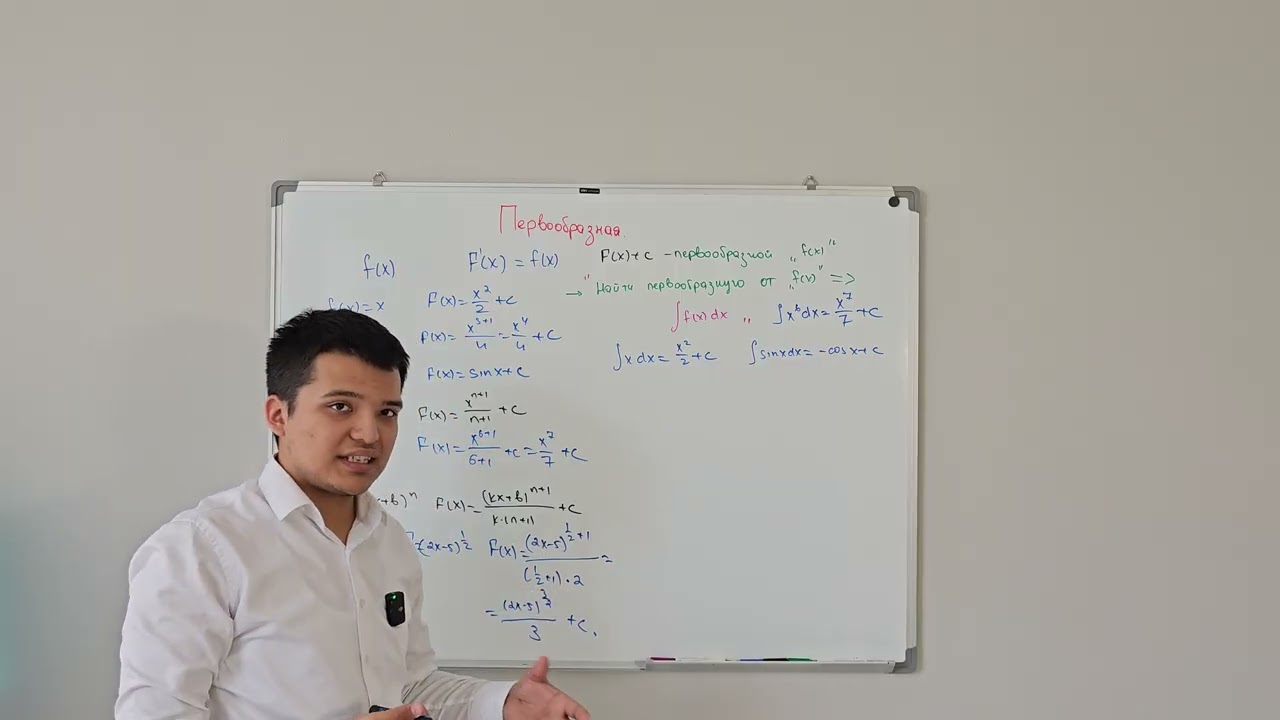 Первообразная
f(x) F'(x) = f(x) F(x)+c - первообразной „f(x)"
→ "Найти первообразную от „f(x)" =>
f(x)=x F(x)= x²/2 +c
∫f(x)dx „ ∫x⁶dx= x⁷/7 +c
F(x)= x³⁺¹/4 = x⁴/4 +c
∫x dx= x²/2 +c ∫sinxdx= -cosx+c
F(x)= sinx+c
F(x)= xⁿ⁺¹/n+1 +c
F(x)= x⁶⁺¹/6+1 +c = x⁷/7 +c
x+b)ⁿ F(x)= (kx+b)ⁿ⁺¹/k·(n+1) +c
(2x-5)^1/2 F(x)= (2x-5)^1/2+1/(1/2+1)·2 =
= (2x-5)^3/2/3 +c.